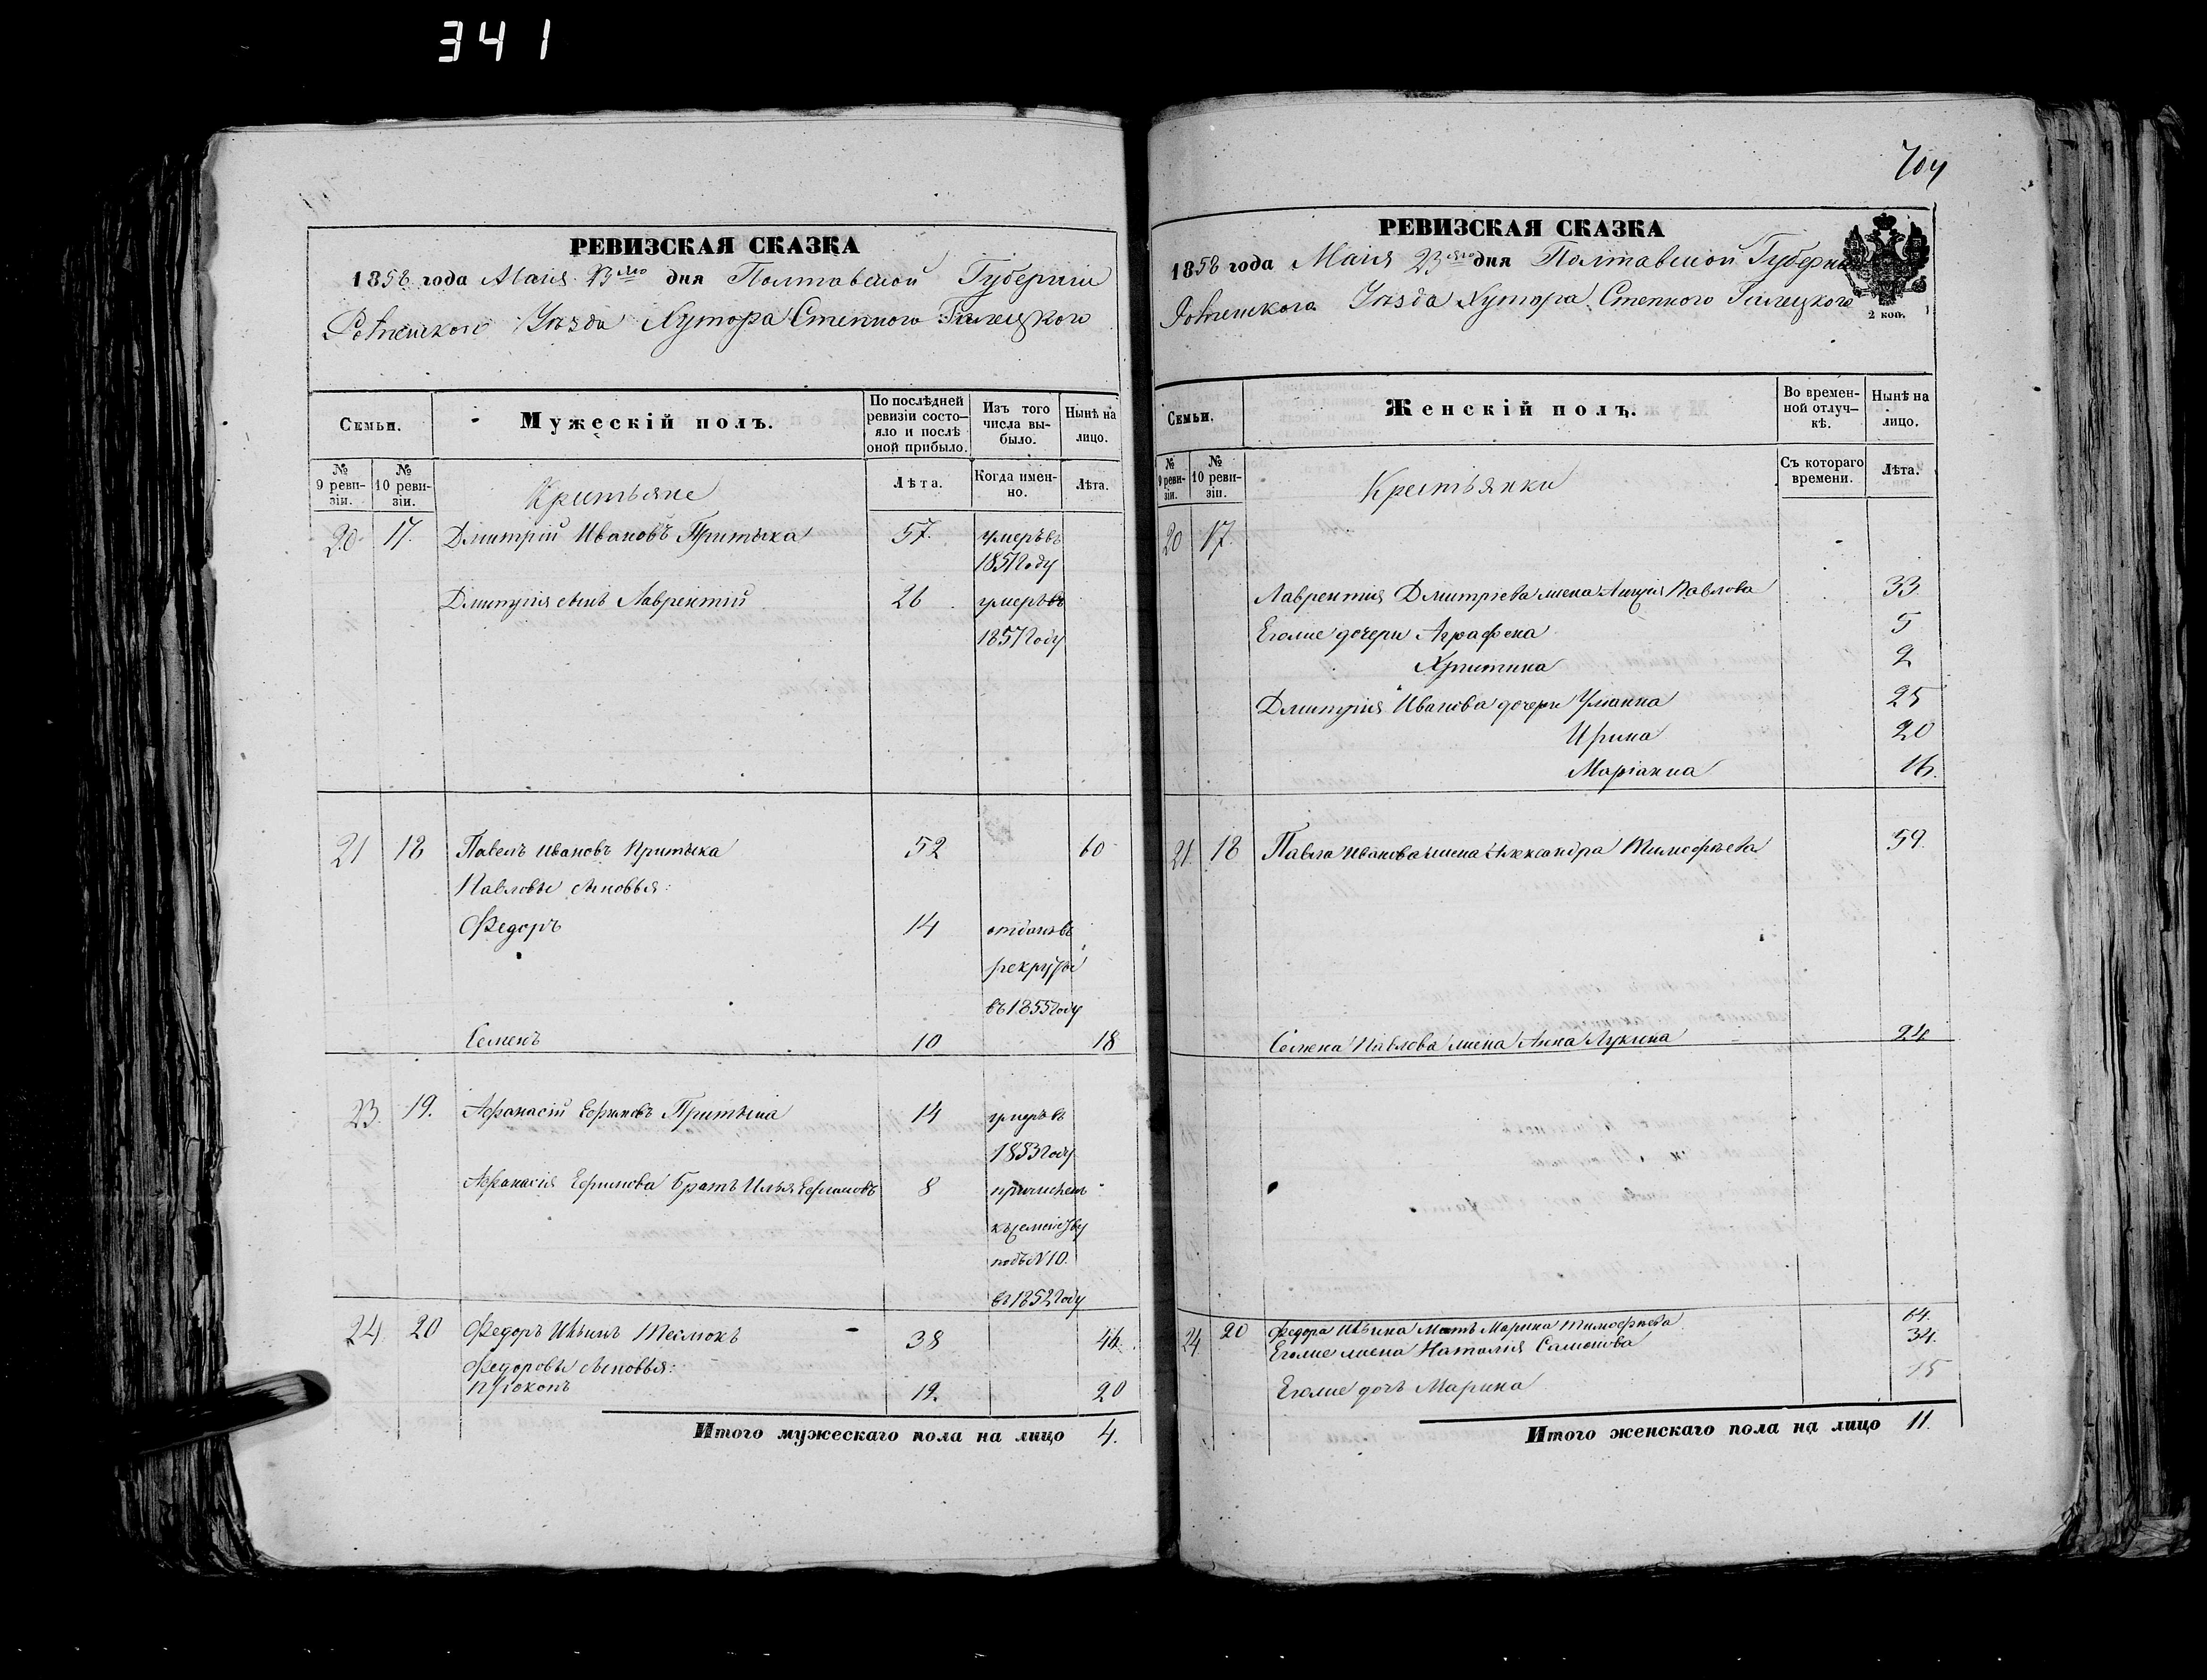 341
РЕВИЗСКАЯ СКАЗКА
1858 года Маия 23го дня Полтавской Губерніи
Уѣзда Хутора Степного
Семьи.
Мужескій полъ.
По послѣдней ревизіи состояло и послѣ оной прибыло.
Изъ того числа выбыло.
Нынѣ на лицо.
№ 9 ревизіи.
№ 10 ревизіи.
Крестьяне
Лѣта.
Когда именно.
Лѣта.
20 17. Дмитрій Ивановъ Притыка 57. умеръ въ
1857 году
Дмитрія сынъ Лаврентій 26 умеръ въ
1857 году
21 18 Павелъ Ивановъ Притыка 52 60
Павловы сыновья:
Федоръ 14 отданъ въ
рекруты
въ 1855 году
Семенъ 10 18
23. 19. Афанасій Ефимовъ Притыка 14 умеръ въ
1853 году
Афанасія Ефимова братъ Илья Ефимовъ 8 причисленъ
къ семейству
подъ N 10.
въ 1852 году
24. 20 Федоръ Ильинъ 38 46.
Федоровы сыновья:
Прокопъ 12. 20
Итого мужескаго пола на лицо 4.
704
РЕВИЗСКАЯ СКАЗКА
1858 года Маия 23го дня Полтавской Губерніи
Уѣзда Хутора Степного
2 коп.
Семьи.
Женскій полъ.
Во временной отлучкѣ.
Нынѣ на лицо.
№ 9 ревизіи.
№ 10 ревизіи.
Крестьянки
Съ котораго времени.
Лѣта.
20 17.
Лаврентія Дмитріева жена Павлова 33.
Еголие дочери Аграфена 5
Христина 2
Дмитрія Иванова дочери Ульяна 25
Ирина 20
Маріанна 16.
21. 18 Павла Иванова жена Александра Тимофѣева 59.
Семена Павлова жена Анна Лукина 24
24. 20 Федора Ильина мать Марина Тимофѣева 64.
Еголие жена Наталия 34.
Еголие дочь Марина 15
Итого женскаго пола на лицо 11.